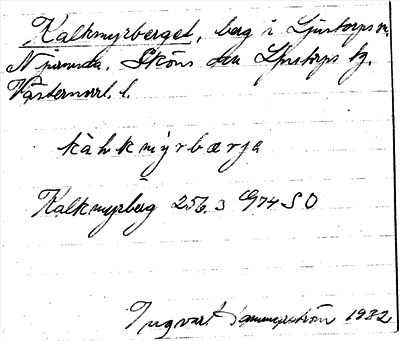 Kalkmyrberget, berg i Ljustorps sn.
Njurunda, Sköns och Ljustorps tg.
Västernorrl. l.
kàlkmýrbærja
Kalkmyrberg 256.3 G74 SO
Ingvar Hammarström 1932